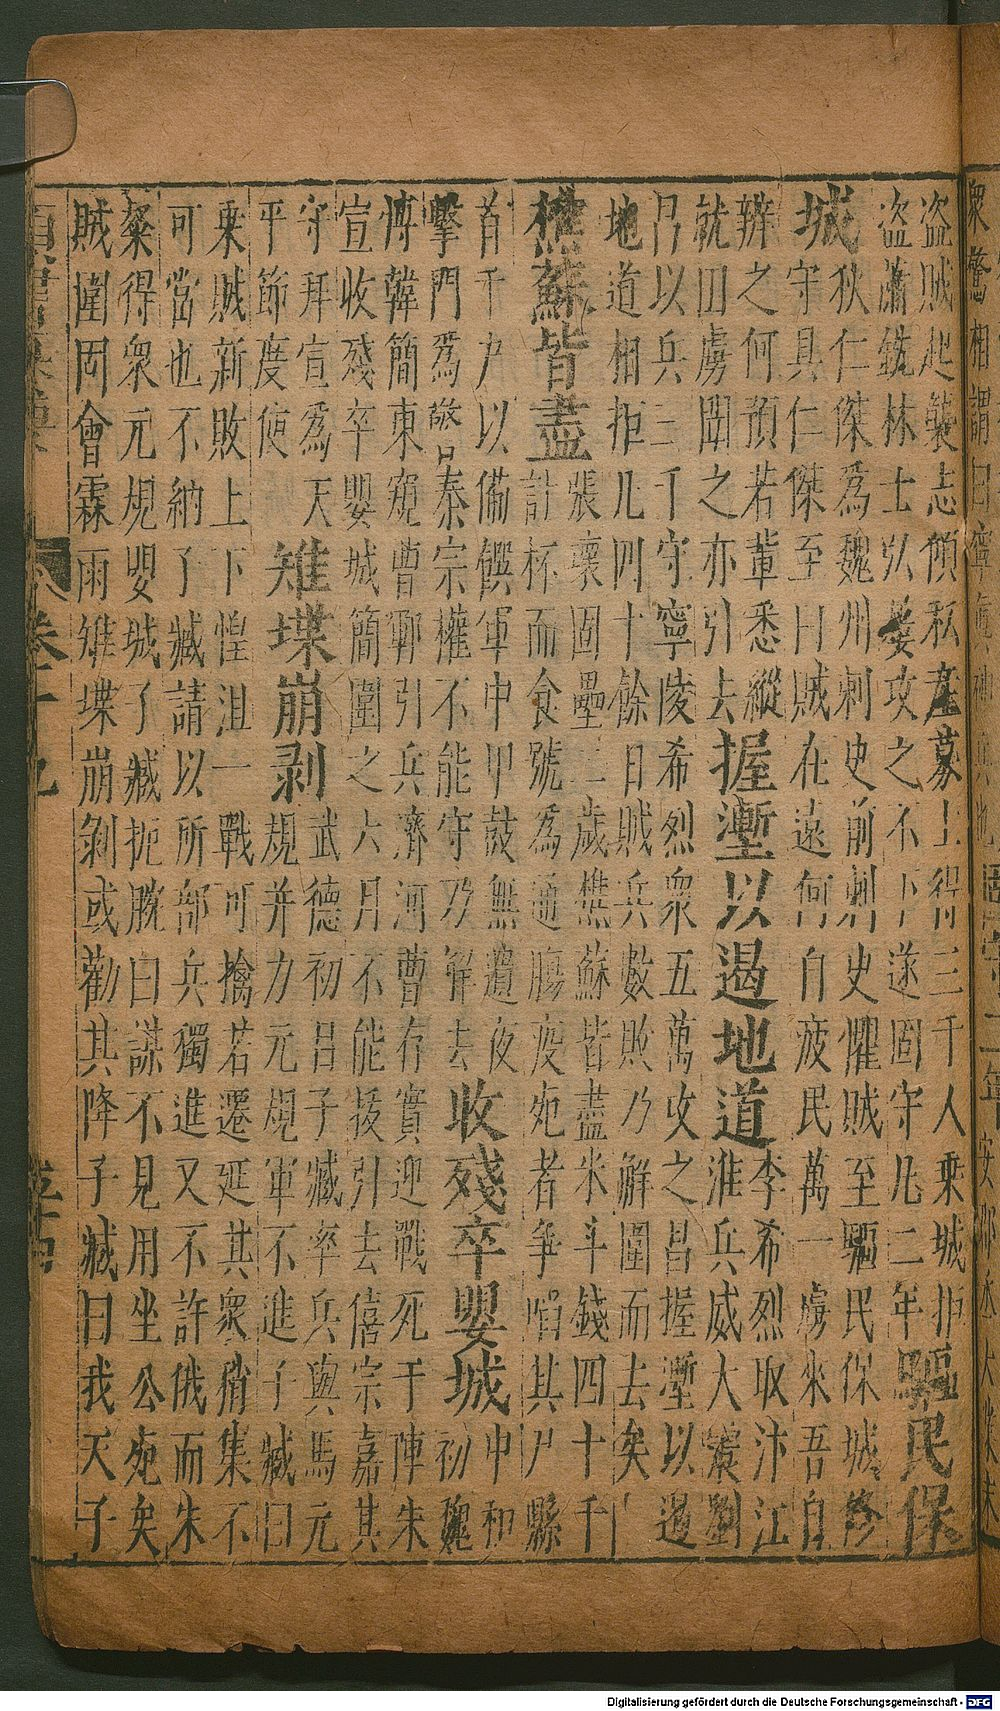 盜賊起襲志傾私產募士得三千人乘城拒
盜蕭銑林士弘婁攻之不下遂固守凡二年
驅民保
城
狄仁傑為魏州刺史前刺史懼賊至驅民保城修
守具仁傑至曰賊在遠何自疲民萬一虜來吾自
辦之何預若輩悉縱
就田虜聞之亦引去
握塹以遏地道
李希烈取汴江
淮兵威大震劉
昌以兵三千守寧陵希烈衆五萬攻之昌握塹以遏
地道相拒凡四十餘日賊兵數敗乃解圍而去矣
樵蘇皆盡
張壞固壘二歲樵蘇皆盡米斗錢四十千
計杯而食號為通腸疫死者爭啗其尸縣
首千戶以備饌軍中甲鼓無遺夜
擊門為警曰秦宗權不能守乃解去
收殘卒嬰城
中和
初魏
博韓簡東窺曹鄆引兵濟河曹存實迎戰死于陣朱
宣收殘卒嬰城簡圍之六月不能拔引去僖宗嘉其
守拜宣為天
平節度使
雉堞崩剥
武德初呂子臧率兵與馬元
規并力元規軍不進子臧曰
乗賊新敗上下惶沮一戰可擒若遷延其衆稍集不
可當也不納子臧請以所部兵獨進又不許俄而朱
粲得衆元規嬰城子臧扼腕曰謀不見用坐公死矣
賊圍固會霖雨雉堞崩剝或勸其降子臧曰我天子
卷十九
Digitalisierung gefördert durch die Deutsche Forschungsgemeinschaft - DFG